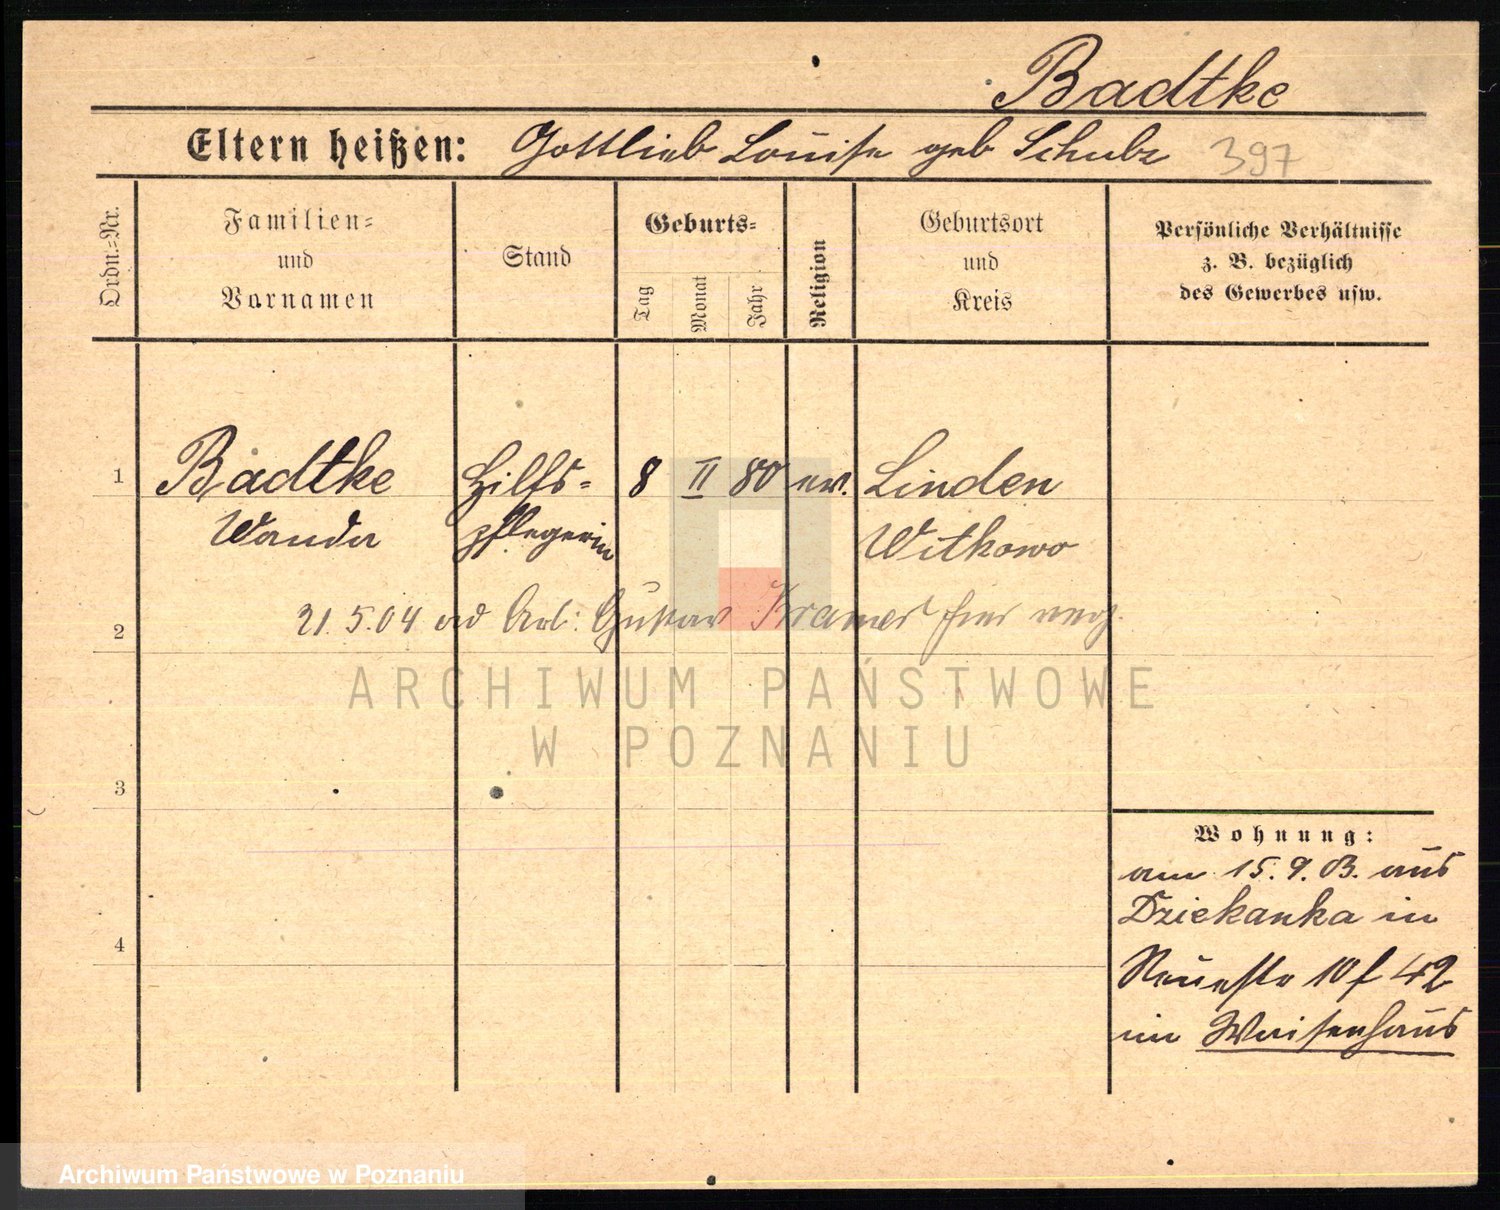 Badtke
Eltern heißen: Gottlieb Louise geb Schulz 397
Ordn.=Nr.
Familien=
und
Vornamen
Stand
Geburts=
Tag
Monat
Jahr
Religion
Geburtsort
und
Kreis
Persönliche Verhältnisse
z. B. bezüglich
des Gewerbes usw.
1 Badtke Hilfs= 8 II 80 ev. Linden
Wanda pflegerin Witkowo
2 21.5.04 Arb: Gustav Kramer hier
ARCHIWUM PAŃSTWOWE
W POZNANIU
3
4
Wohnung:
am 15.9.03. aus
Dziekanka in
Neuestr 10 f 42
im Waisenhaus
Archiwum Państwowe w Poznaniu